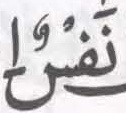 نَفْسٌ ا